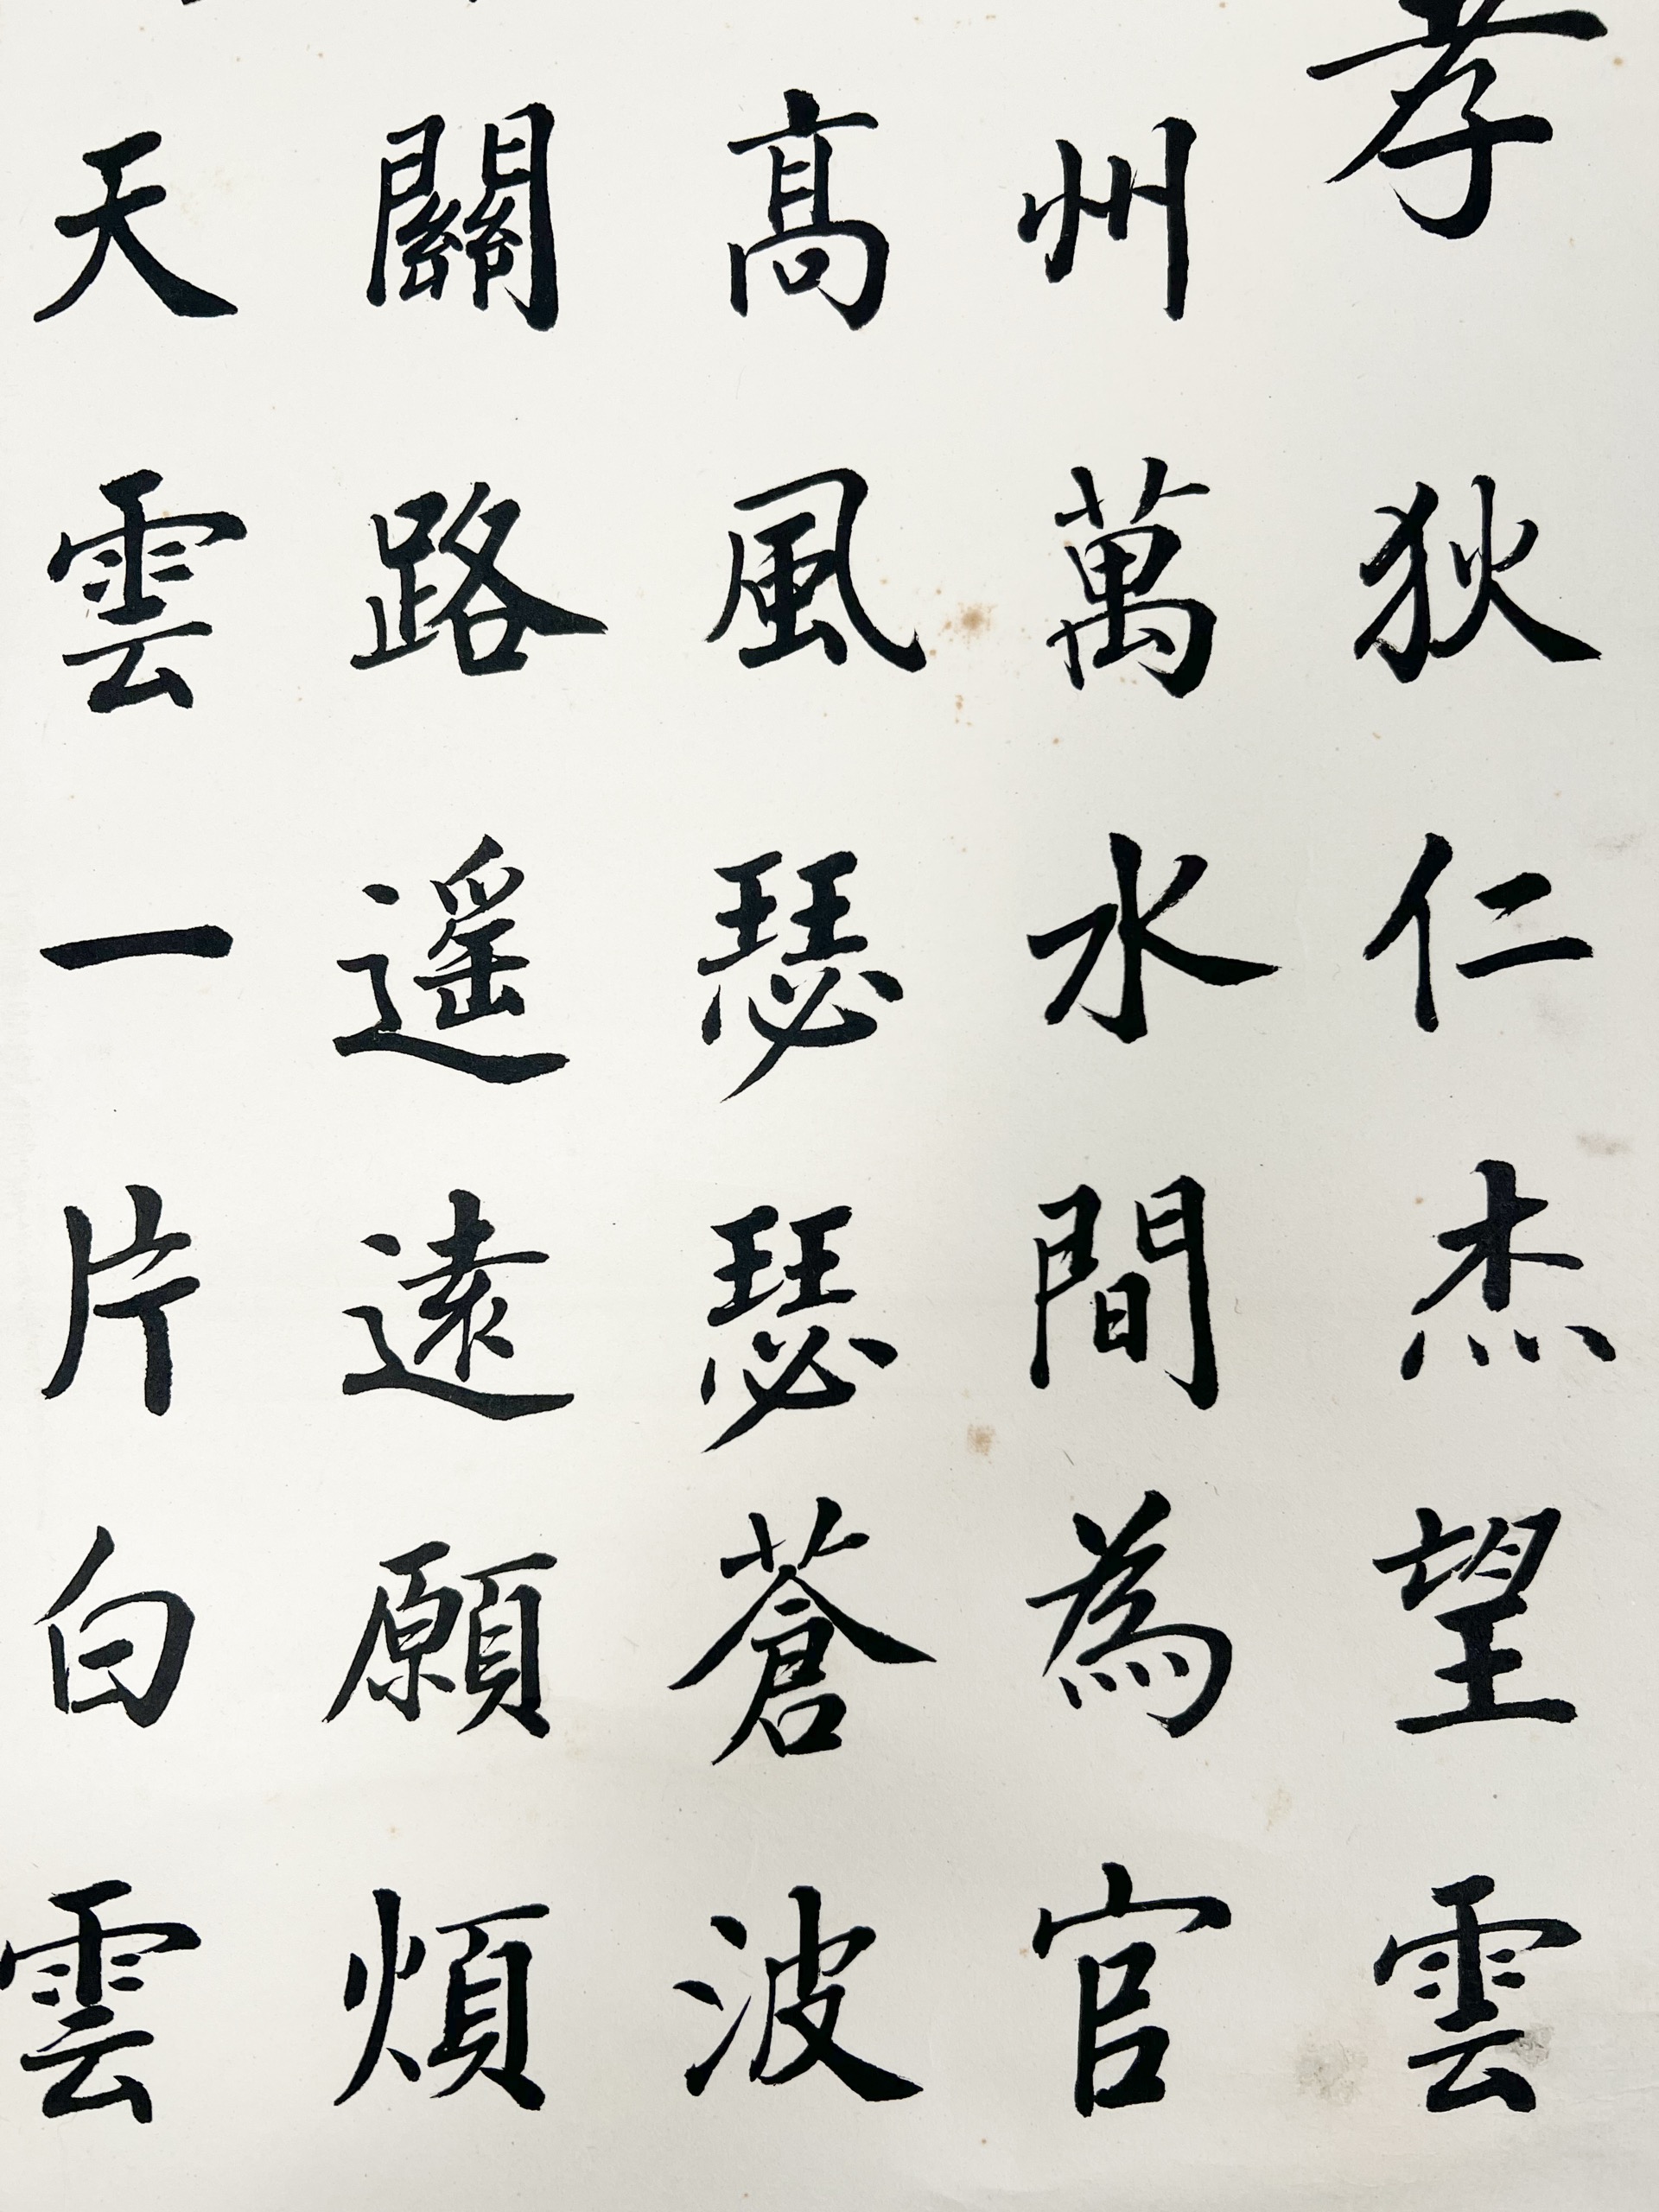 孝狄仁杰望雲
州萬水間為官
高風瑟瑟蒼波
關路遥遠願煩
天雲一片白雲